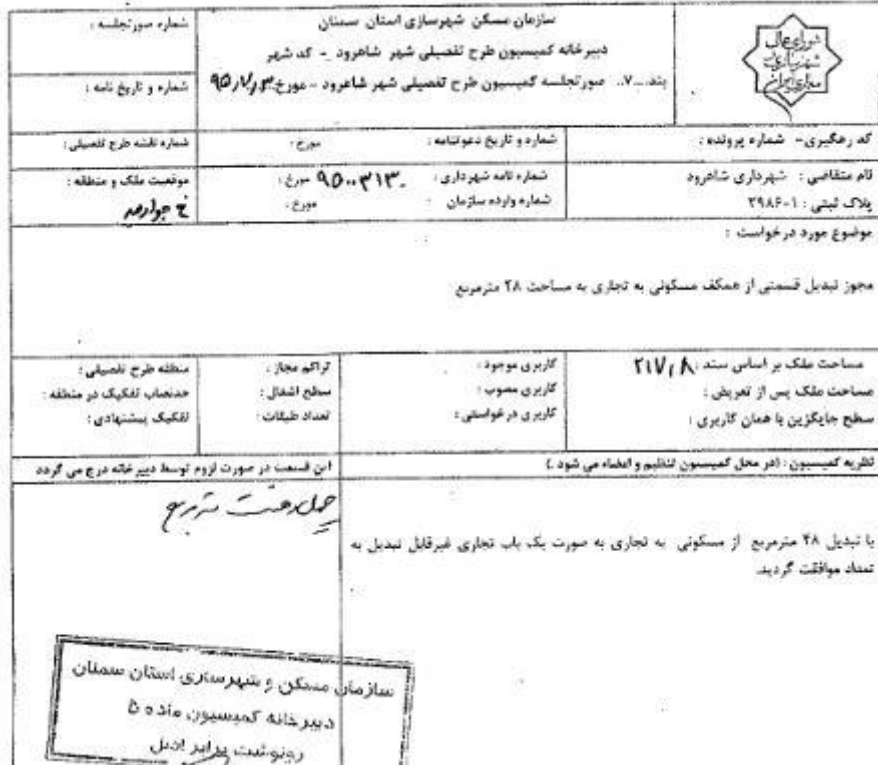 شورای عالی
شهرسازی و
معماری ایران
سازمان مسکن شهرسازی استان سمنان
دبیرخانه کمیسیون طرح تفصیلی شهر شاهرود - کد شهر
بند...۷.. صورتجلسه کمیسیون طرح تفصیلی شهر شاهرود - مورخ ۹۵/۷/۳
شماره صورتجلسه :
شماره و تاریخ نامه :
کد رهگیری- شماره پرونده :
شماره و تاریخ دعوتنامه : مورخ :
شماره نقشه طرح تفصیلی :
نام متقاضی : شهرداری شاهرود
پلاک ثبتی : ۱-۲۹۸۶
شماره نامه شهرداری : ۹۵۰۰۳۱۳۰ مورخ :
شماره وارده سازمان : مورخ :
موقعیت ملک و منطقه :
خ
موضوع مورد درخواست :
مجوز تبدیل قسمتی از همکف مسکونی به تجاری به مساحت ۲۸ مترمربع
مساحت ملک بر اساس سند : ۲۱۷/۸
مساحت ملک پس از تعریض :
سطح جایگزین با همان کاربری :
کاربری موجود :
کاربری مصوب :
کاربری درخواستی :
تراکم مجاز :
سطح اشغال :
تعداد طبقات :
منطقه طرح تفصیلی :
حدنصاب تفکیک در منطقه :
تفکیک پیشنهادی :
نظریه کمیسیون : (در محل کمیسیون تنظیم و امضاء می شود .)
این قسمت در صورت لزوم توسط دبیر خانه درج می گردد
با تبدیل ۴۸ مترمربع از مسکونی به تجاری به صورت یک باب تجاری غیرقابل تبدیل به
تعداد موافقت گردید.
چهل و هشت متر مربع
سازمان مسکن و شهرسازی استان سمنان
دبیرخانه کمیسیون ماده ۵
رونوشت برابر اصل